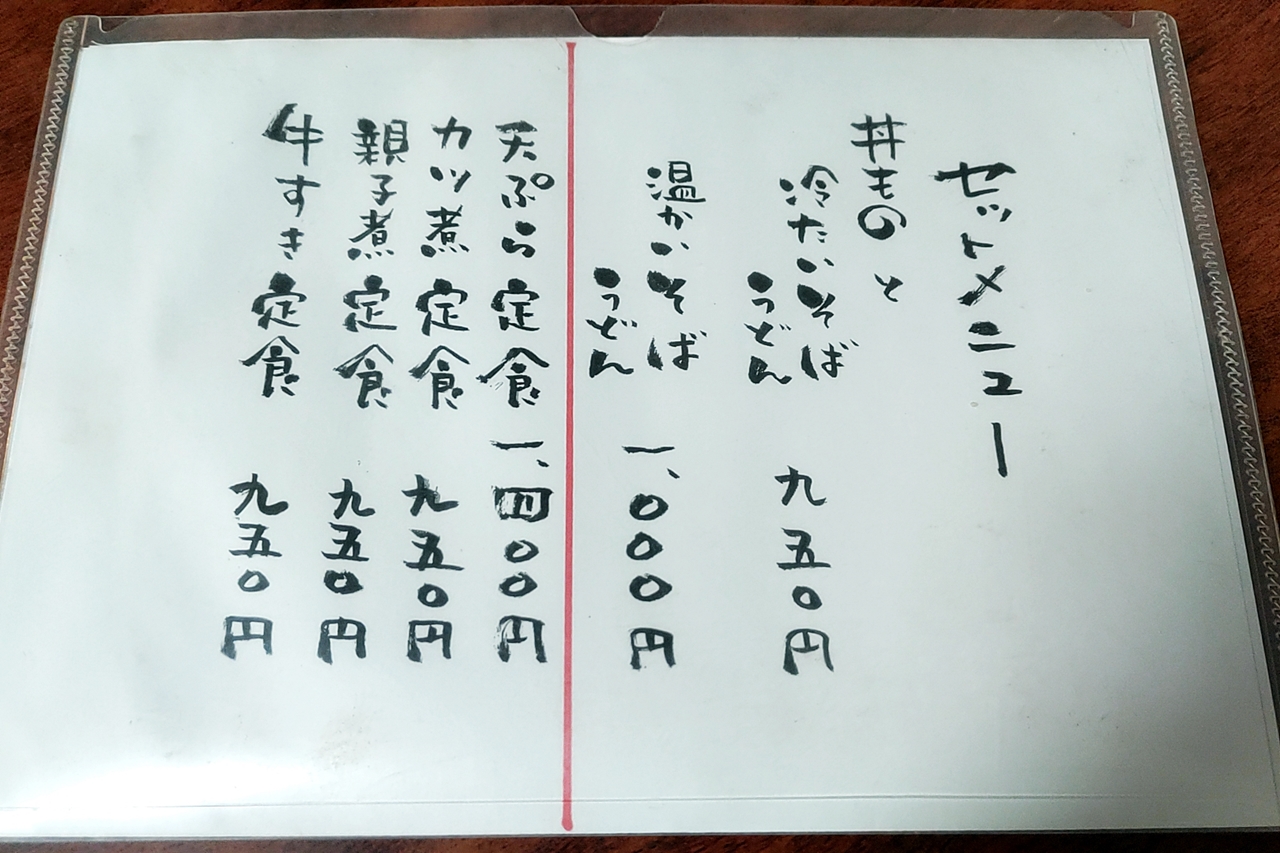 セットメニュー
丼もの と
冷たいそば
うどん
九五〇円
温かいそば
うどん
一、〇〇〇円
天ぷら定食 一、四〇〇円
カツ煮定食 九五〇円
親子煮定食 九五〇円
牛すき定食 九五〇円